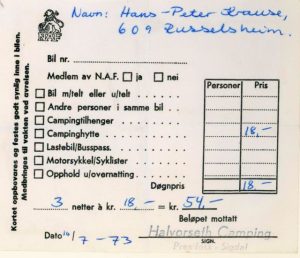 Navn: Hans-Peter Krause,
609 Russelsheim.
Kortet oppbevares og festes godt synlig inne i bilen.
Medbringes til vakten ved avreisen.
Bil nr.
Medlem av N.A.F. ja nei
Personer Pris
Bil m/telt eller u/telt
Andre personer i samme bil
Campingtilhenger
Campinghytte 18,-
Lastebil/Busspass.
Motorsykkel/Syklister
Opphold u/overnatting
Døgnpris 18,-
3 netter à kr. 18,- = kr. 54,-
Beløpet mottatt
Dato 14/7-73
Halvorseth Camping
Sigdal
SIGN.